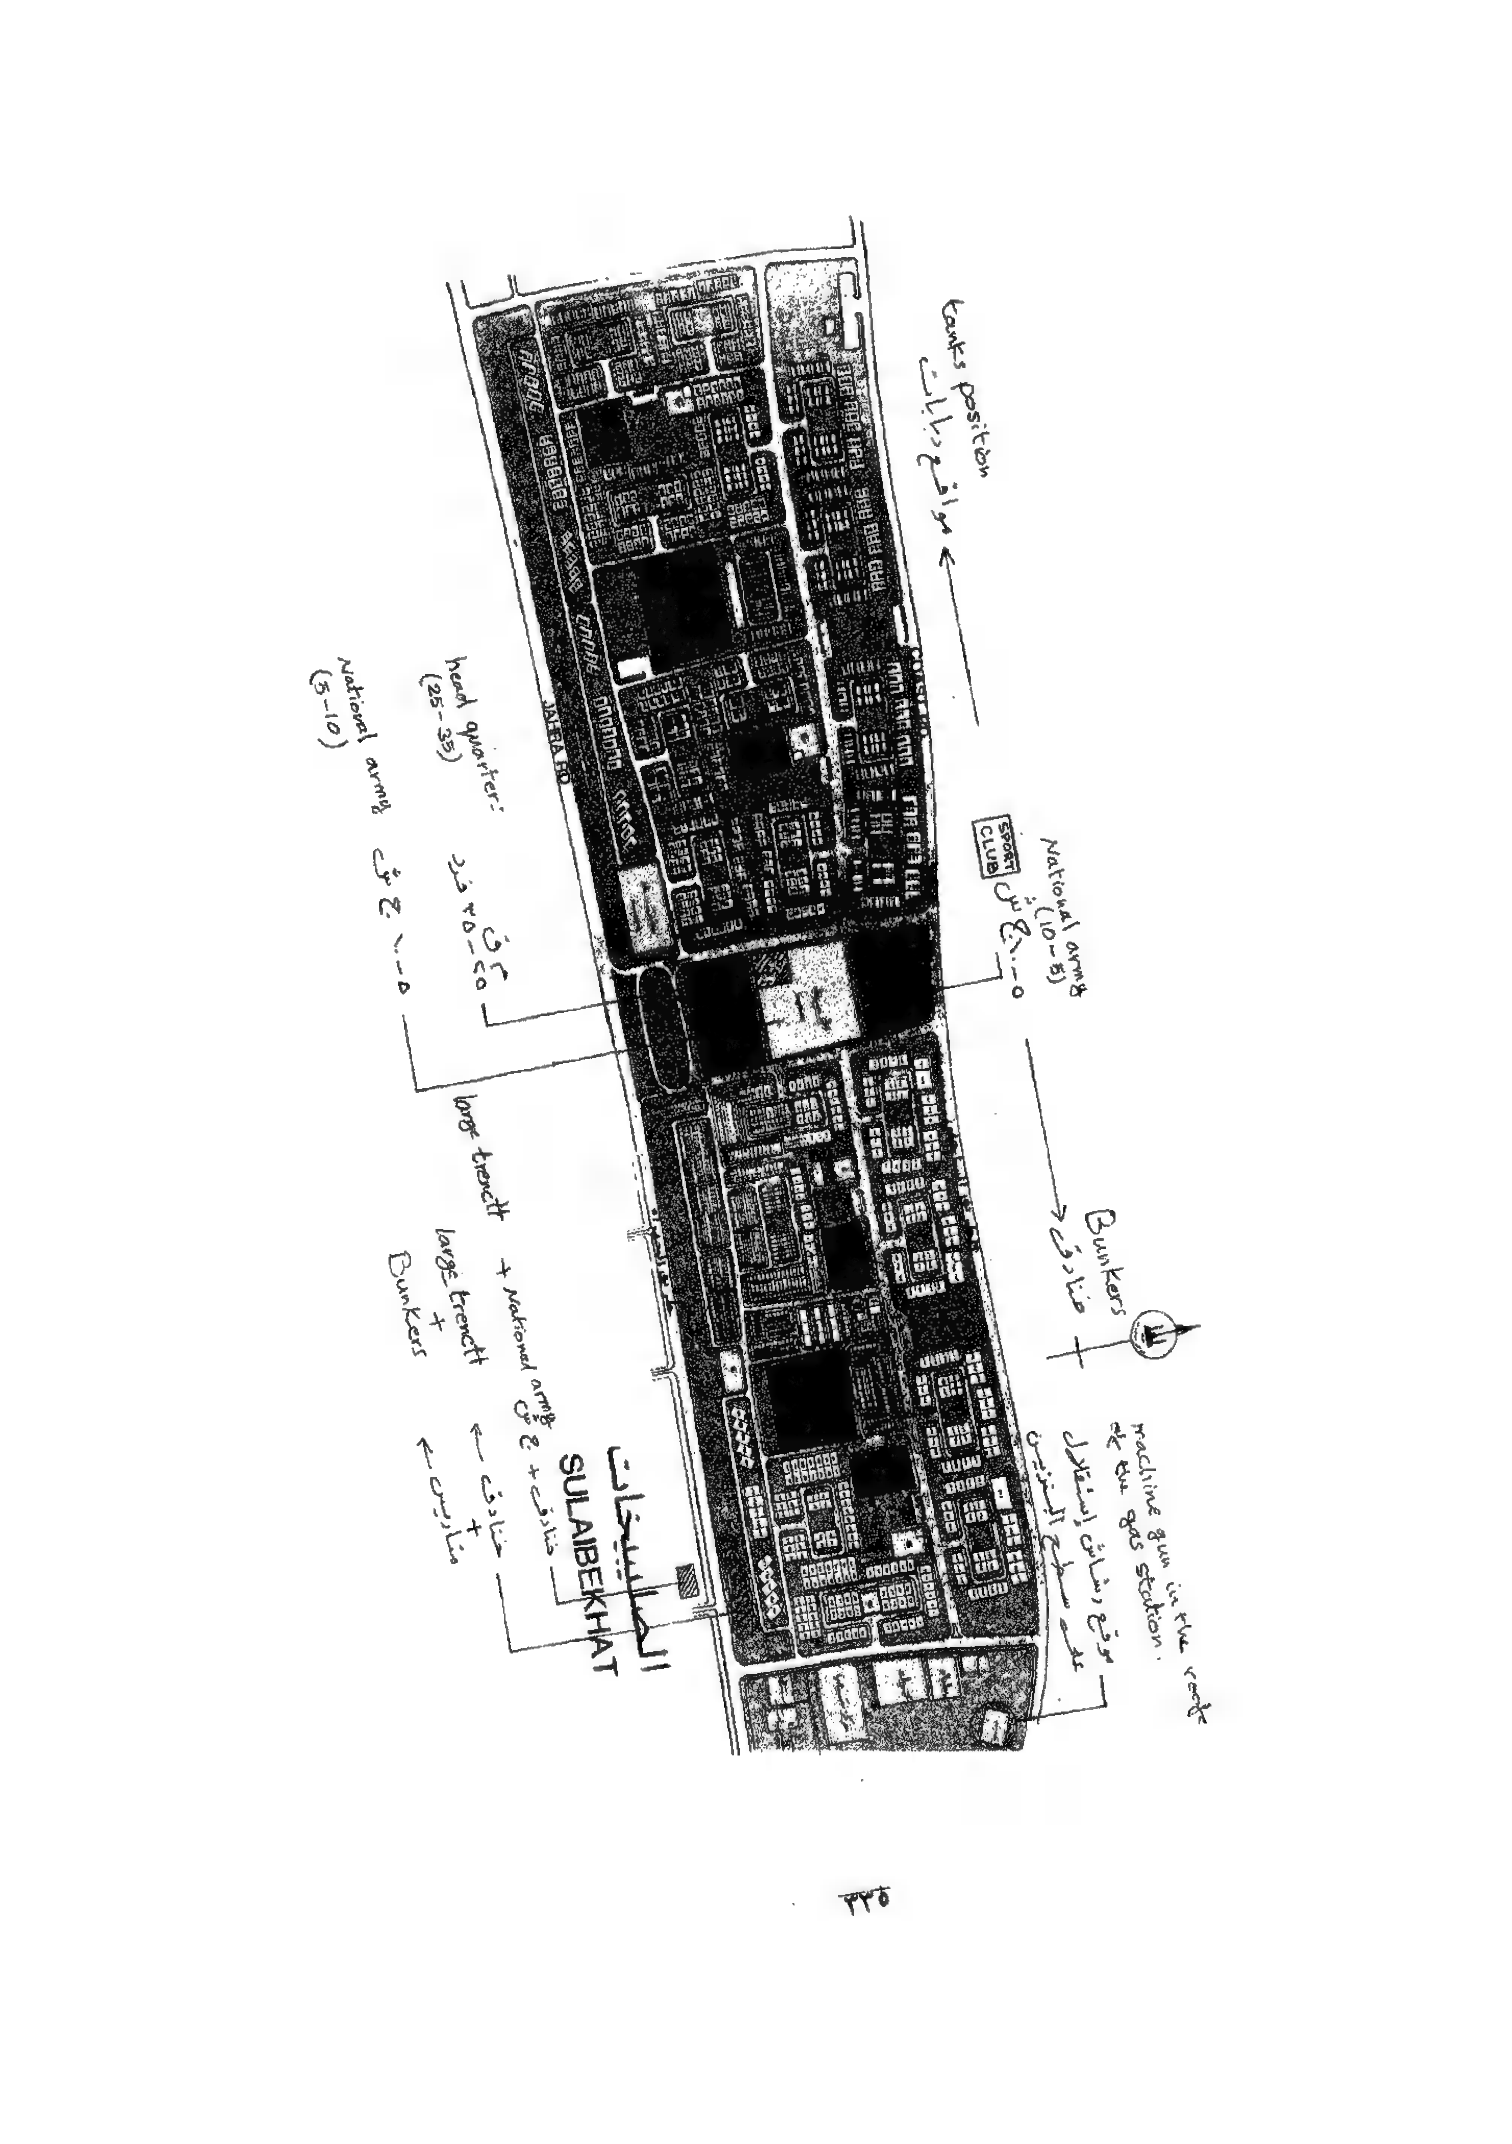 tanks position
مواقع دبابات
COAST RD.
National army
(10-5)
SPORT
CLUB
ج ش ١٠-٥
Bunkers
خنادق
machine gun in the roof
of the gas station.
موقع رشاش إستقلال
على سطح البنزين
JAHRA RD
head quarter:
(25-35)
٢٥-٣٥ فرد
National army
(5-10)
ج ش ١٠-٥
large trench + National army
خنادق + ج ش
large trench
+
Bunkers
خنادق
+
متاريس
الصليبيخات
SULAIBEKHAT
٢٣٥